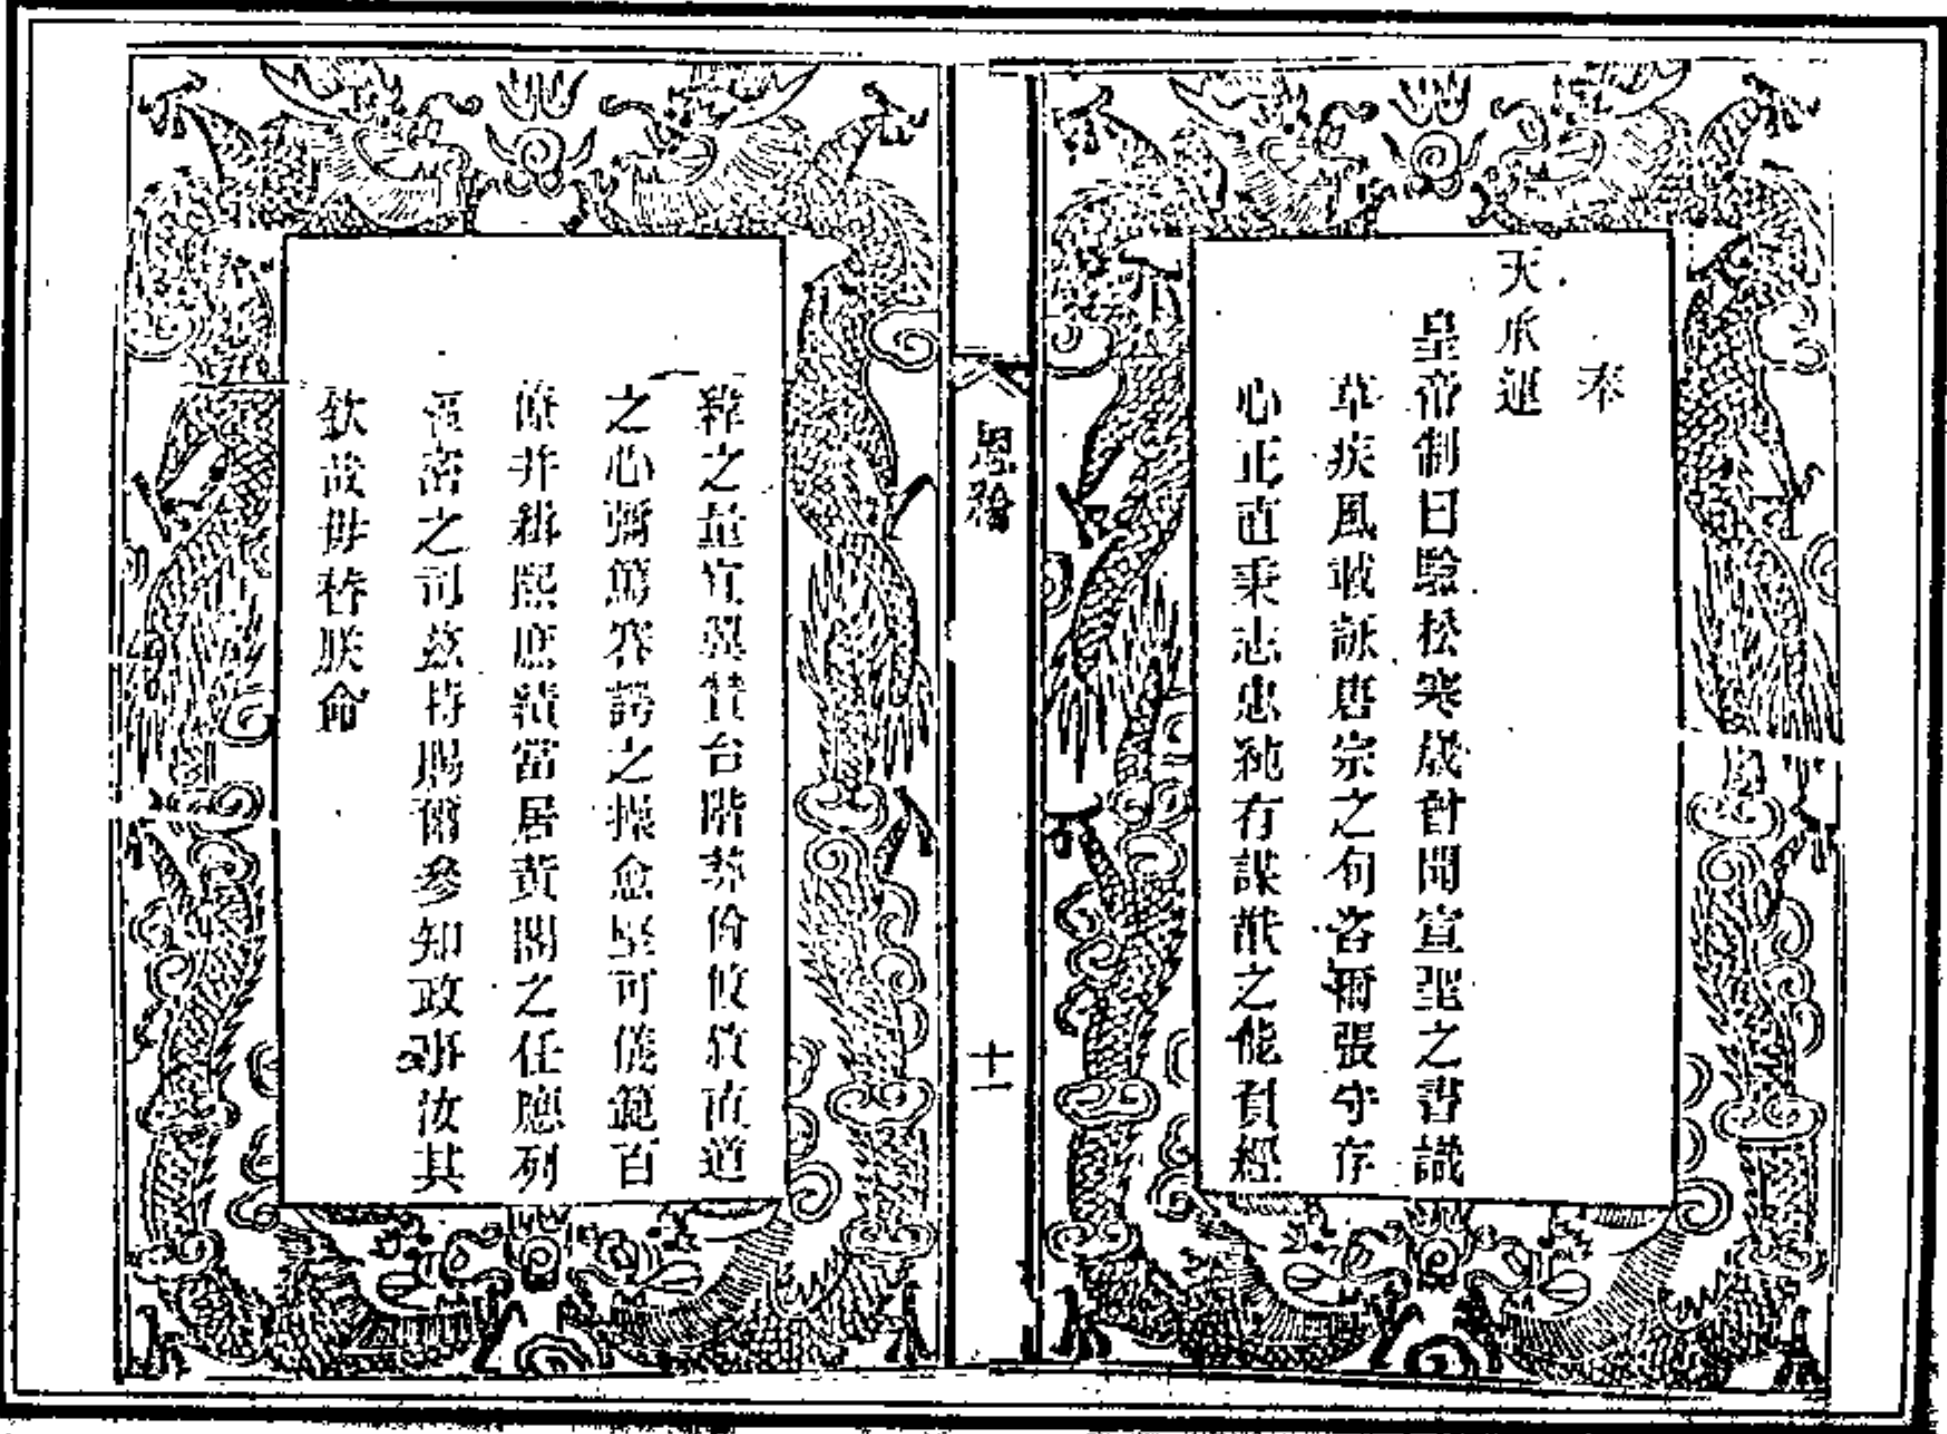 奉
天承運
皇帝制曰驗松寒歲曾聞宣聖之書識
草疾風載詠唐宗之句咨爾張守存
心正直秉志忠純有謀猷之能負經
之量宜異贊台階葬倫攸敘直道
之心彌篤謇諤之操愈堅可儀範百
僚并緝熙庶績當居黃閣之任應列
密之司茲特賜爾參知政事汝其
欽哉毋替朕命
恩綸
十一